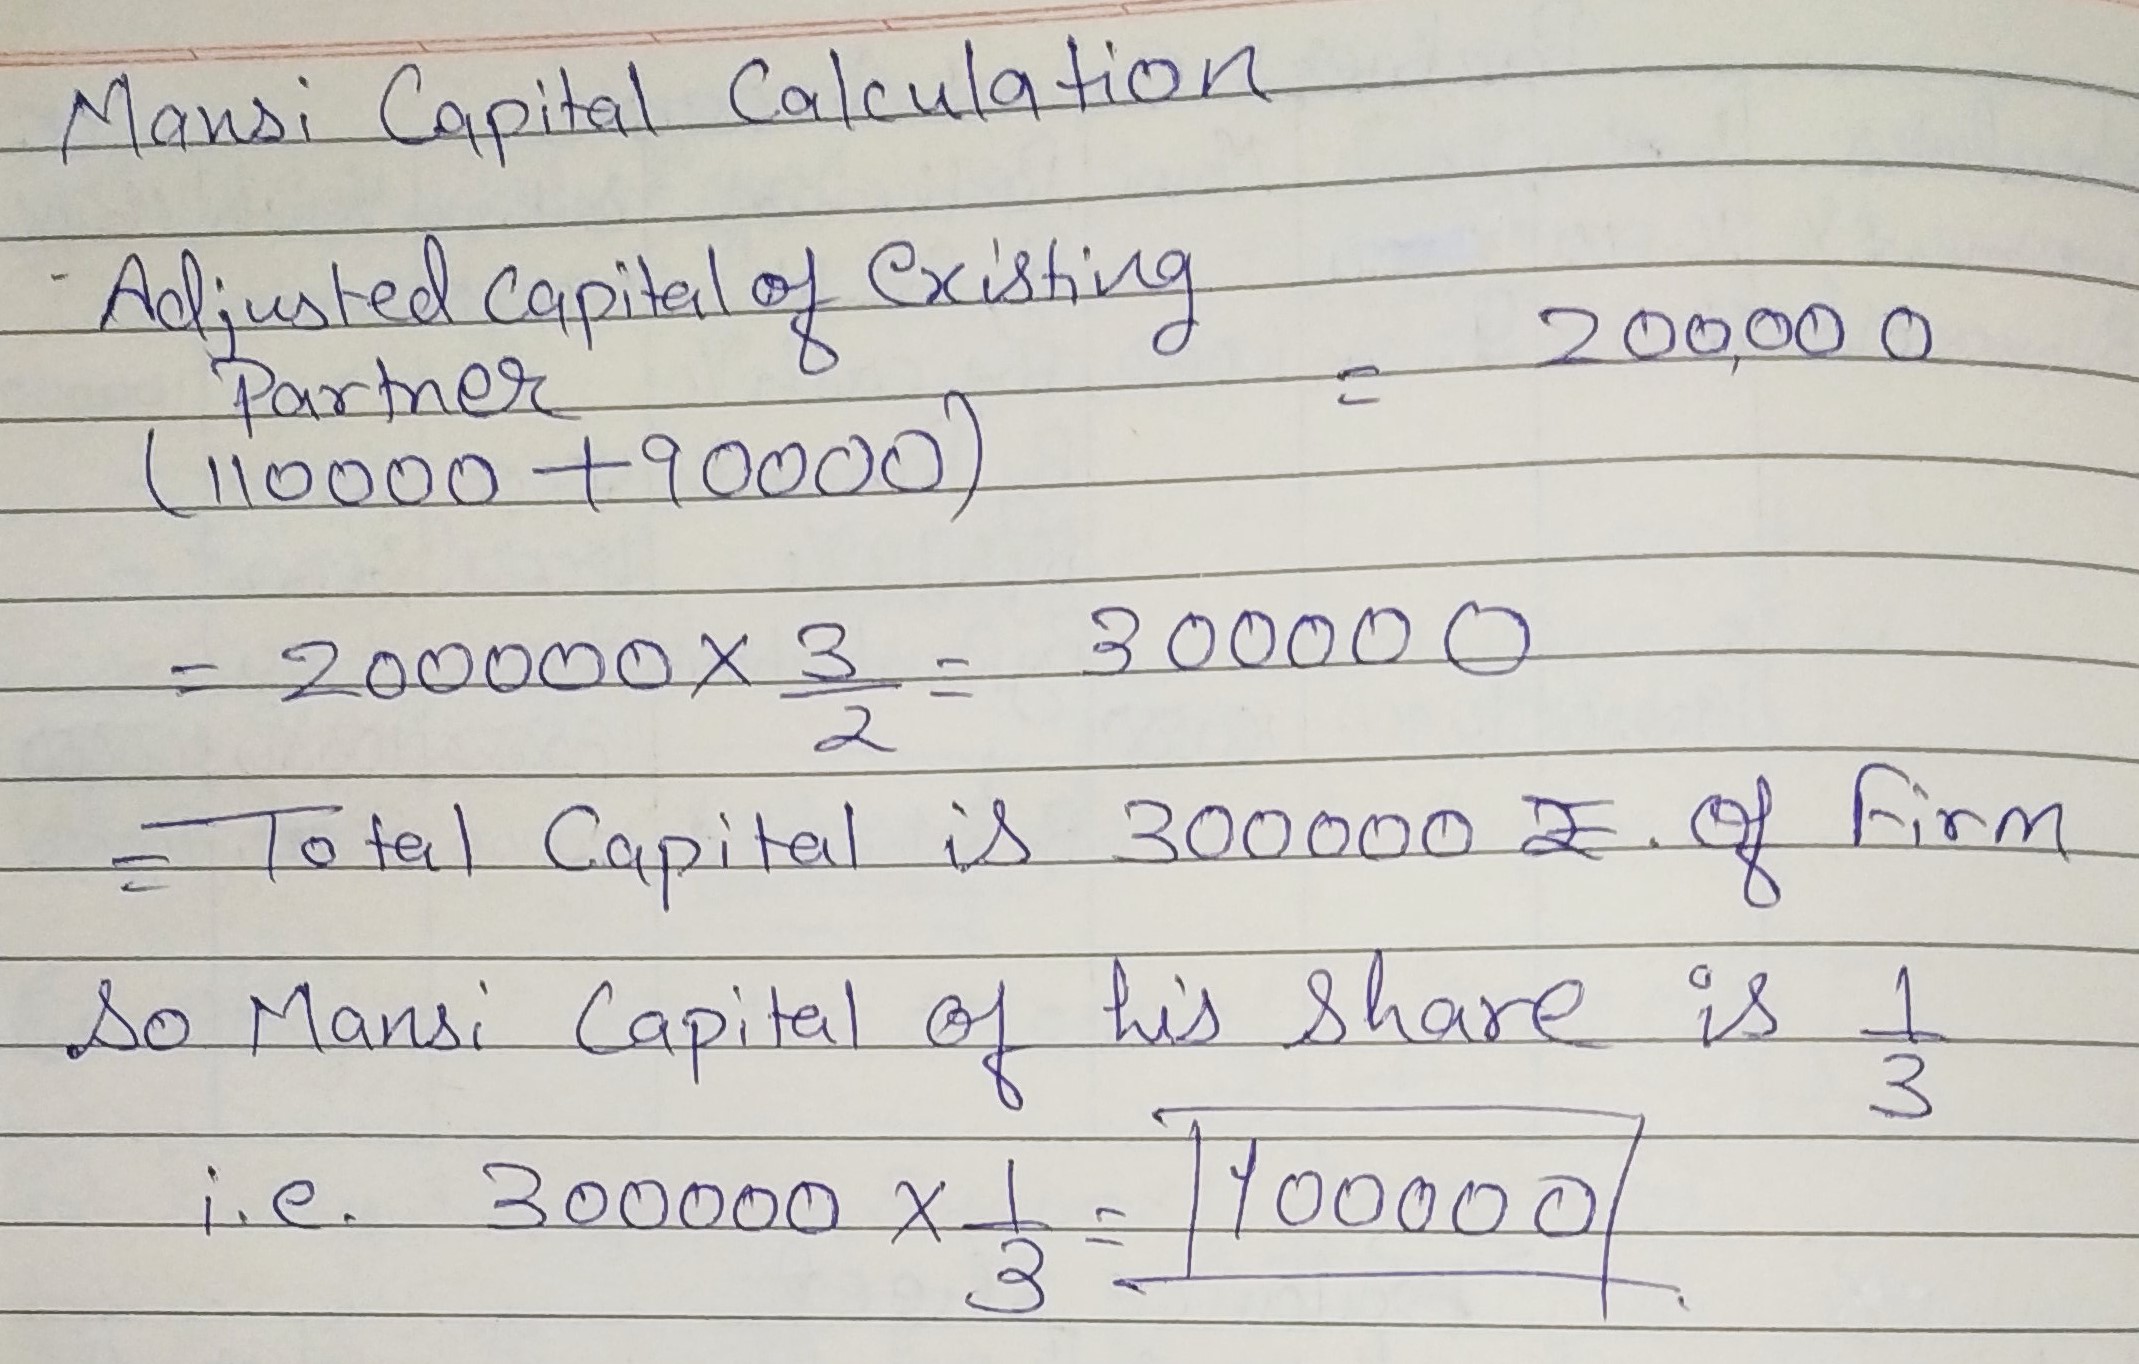 Mansi Capital Calculation
- Adjusted Capital of Existing
Partner = 200,000
(110000 + 90000)
= 200000 × 3/2 = 300000
= Total Capital is 300000 ₹. of Firm
So Mansi Capital of his share is 1/3
i.e. 300000 × 1/3 = 100000